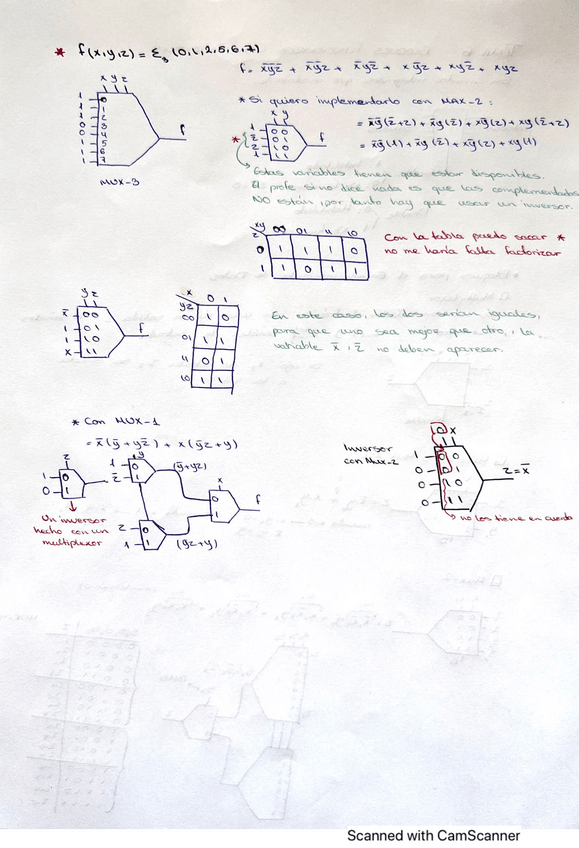 * f(x,y,z) = Σ₃ (0,1,2,5,6,7)
f = x̄ȳz̄ + x̄ȳz + x̄yz̄ + xȳz + xyz̄ + xyz
x y z
1 0
1 1
1 2
0 3
0 4
1 5
1 6
1 7
f
MUX-3
* Si quiero implementarlo con MUX-2 :
= x̄ȳ(z̄+z) + x̄y(z̄) + xȳ(z) + xy(z̄+z)
= x̄ȳ(1) + x̄y(z̄) + xȳ(z) + xy(1)
x y
*
1 00
z̄ 01
z 10
1 11
f
Estas variables tienen que estar disponibles.
El profe si no dice nada es que las complementadas
NO están, por tanto hay que usar un inversor.
xy 00 01 11 10
z
0 1 1 1 0
1 1 0 1 1
Con la tabla puedo sacar *
no me haría falta factorizar
y z
x̄ 00
1 01
1 10
x 11
f
x 0 1
yz
00 1 0
01 1 1
11 0 1
10 1 1
En este caso, los dos serían iguales,
para que uno sea mejor que otro, la
variable x̄ , z̄ no deben aparecer.
* Con MUX-1
= x̄(ȳ+yz̄) + x(ȳz+y)
z
1 0
0 1
Un inversor
hecho con un
multiplexor
y
1 0
z̄ 1
(ȳ+yz̄)
z 0
1 1
(ȳz+y)
x
0
1
f
Inversor
con Mux-2
0 x
1 00
0 01
0 10
0 11
z = x̄
no los tiene en cuenta
Scanned with CamScanner